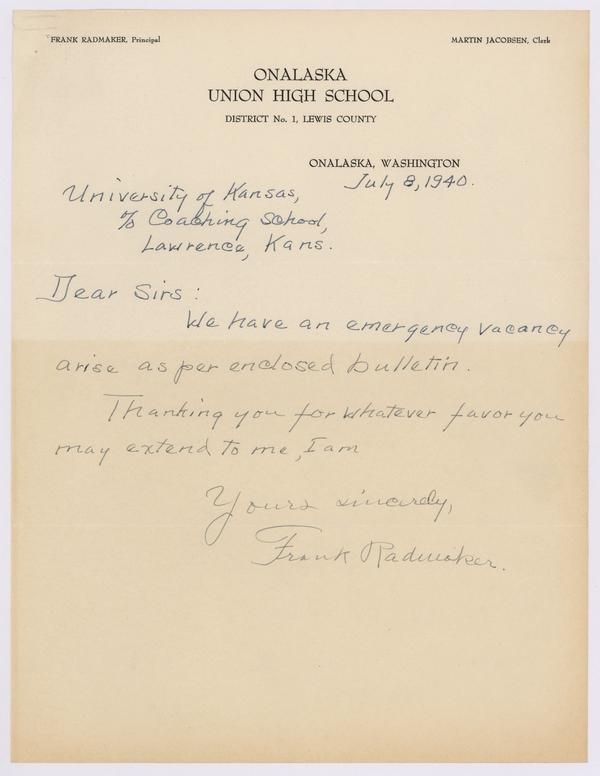 FRANK RADMAKER, Principal
MARTIN JACOBSEN, Clerk
ONALASKA
UNION HIGH SCHOOL
DISTRICT No. 1, LEWIS COUNTY
ONALASKA, WASHINGTON
July 8, 1940.
University of Kansas,
℅ Coaching School,
Lawrence, Kans.
Dear Sirs:
We have an emergency vacancy
arise as per enclosed bulletin.
Thanking you for whatever favor you
may extend to me, I am
Yours sincerely,
Frank Radmaker.